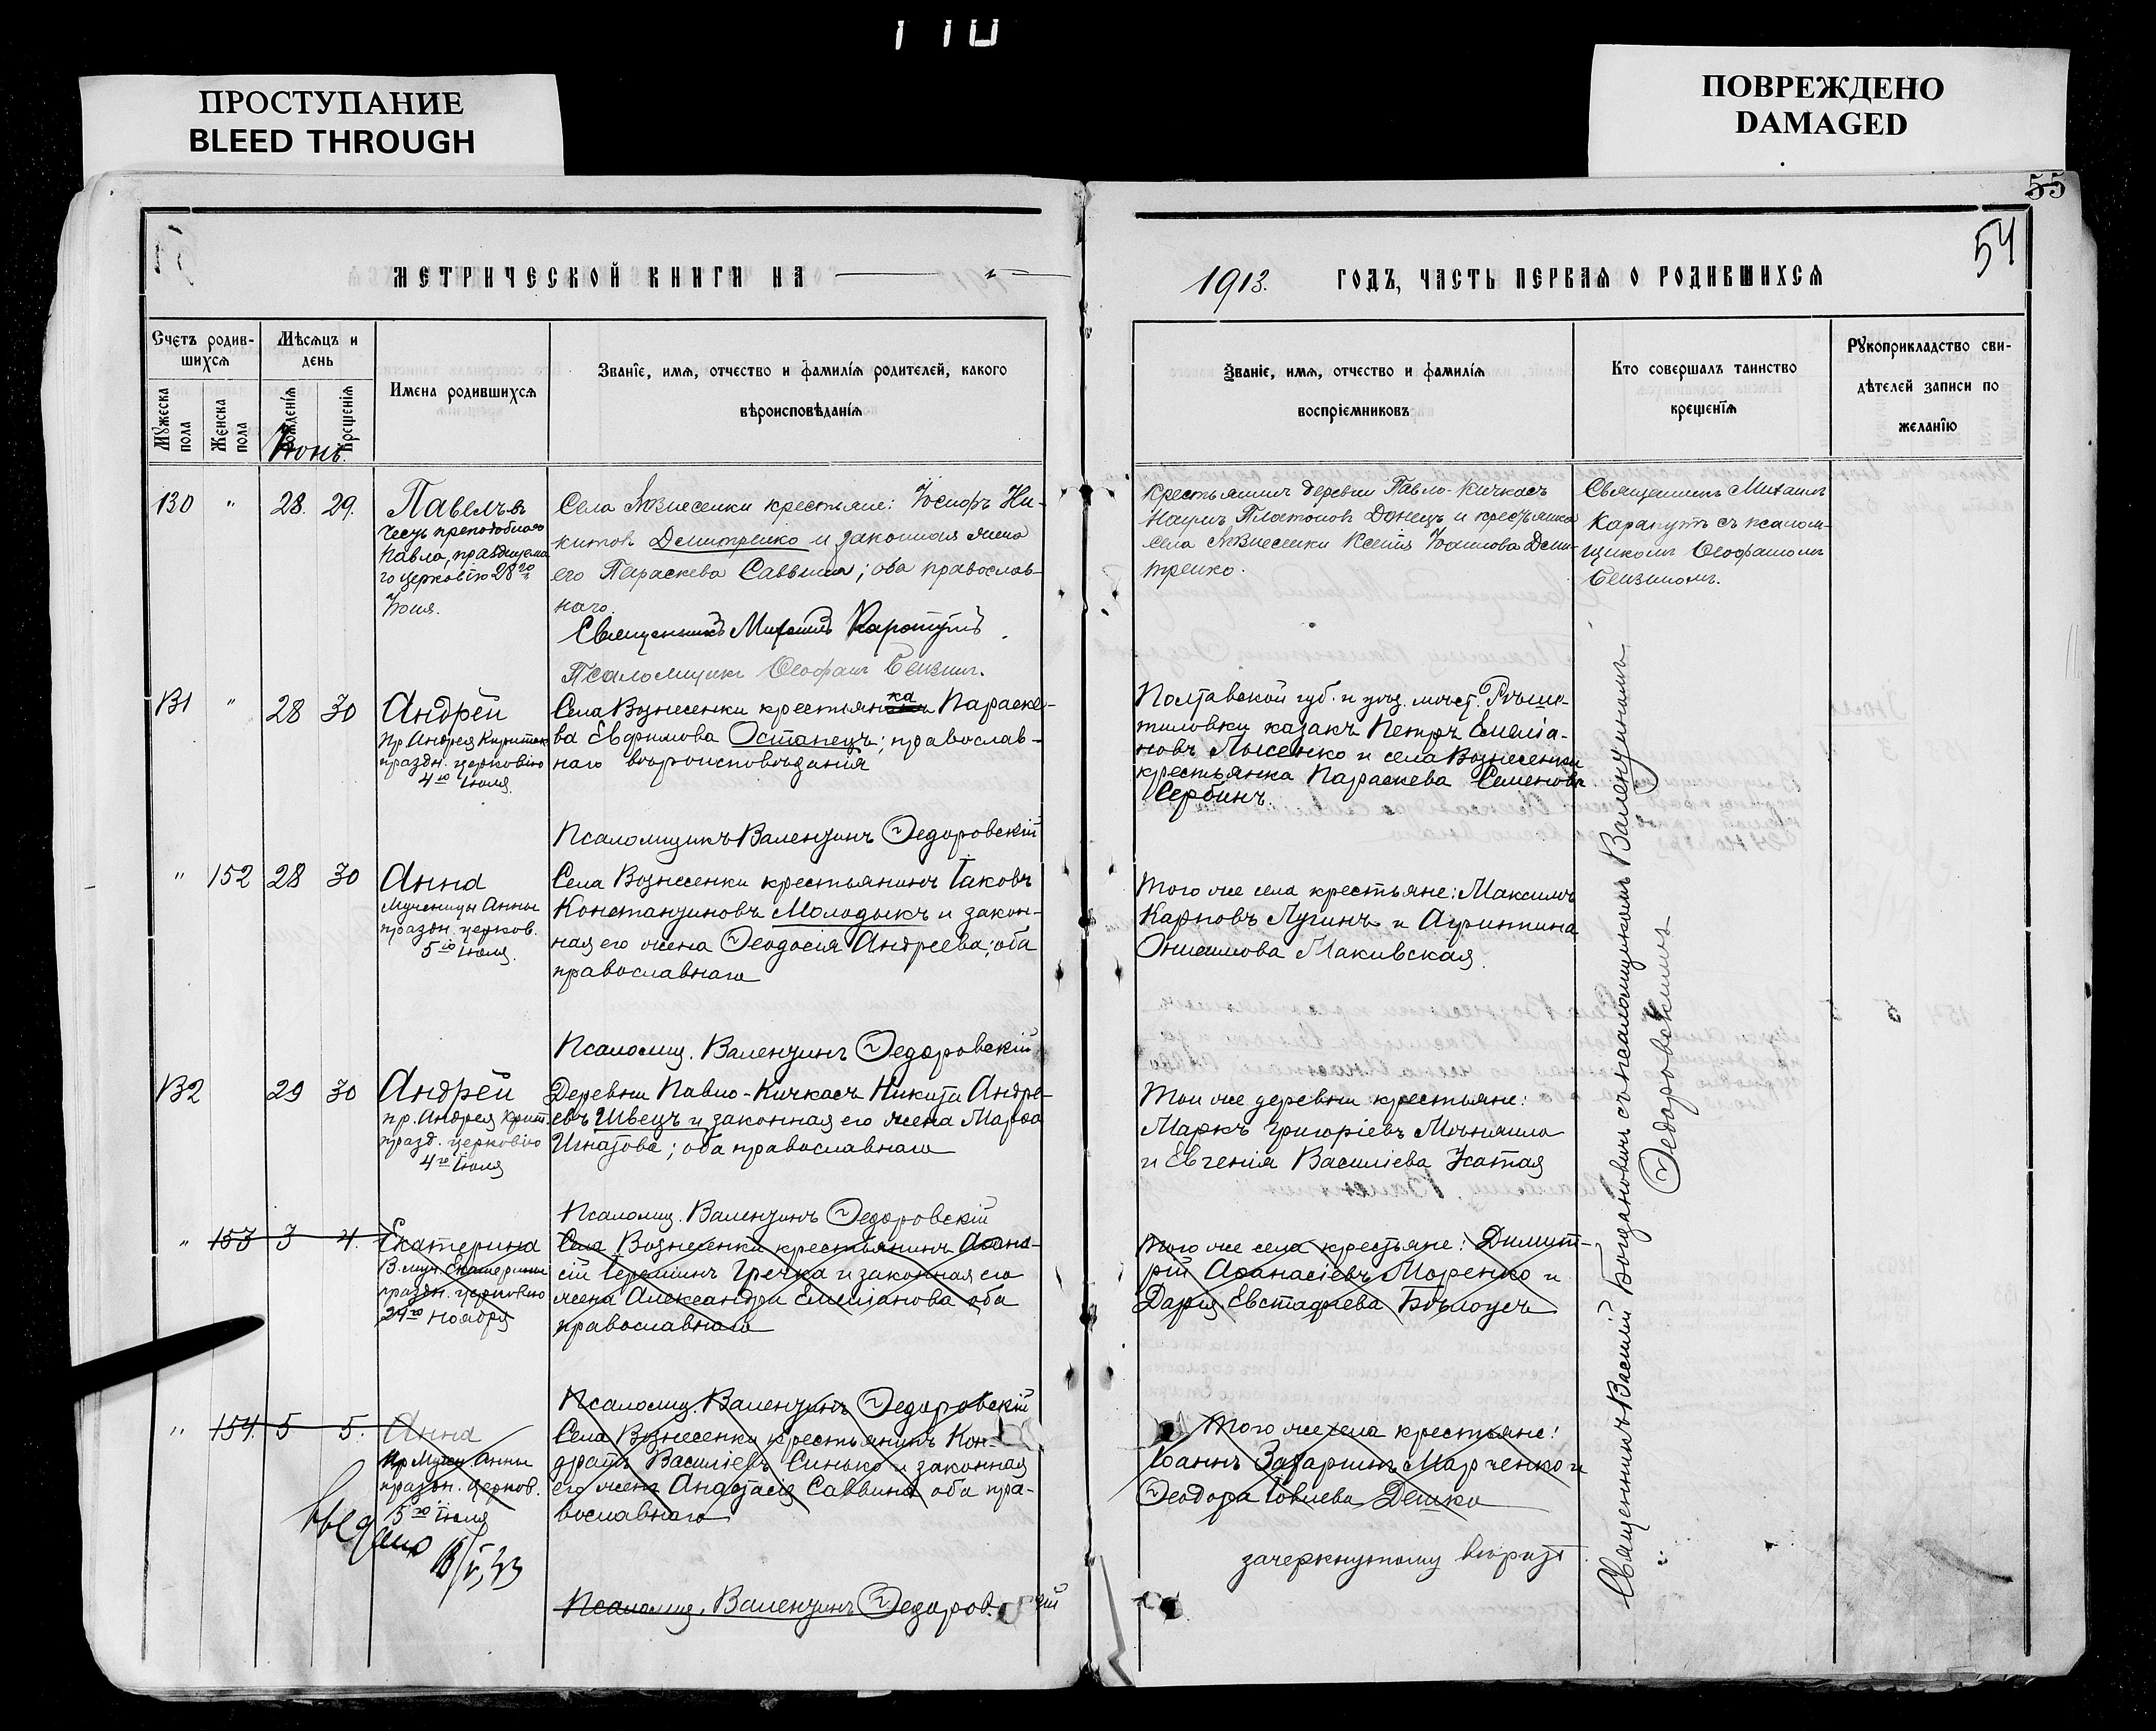 ПРОСТУПАНИЕ
BLEED THROUGH
ПОВРЕЖДЕНО
DAMAGED
55
54
МЕТРИЧЕСКОЙ КНИГИ НА
1913. ГОДЪ, ЧАСТЬ ПЕРВАЯ О РОДИВШИХСЯ
Счетъ родив-
шихся
Мужеска пола
Женска пола
Мѣсяцъ и
день
Рожденія
Крещенія
Имена родившихся
Званіе, имя, отчество и фамилія родителей, какого
вѣроисповѣданія
Званіе, имя, отчество и фамилія
воспріемниковъ
Кто совершалъ таинство
крещенія
Рукоприкладство сви-
дѣтелей записи по
желанію
Іюнь.
130 " 28. 29.
Павелъ-въ
честь преподобнаго
Павла, празднуема-
го церковію 28го
Іюня.
Села Вознесенки крестьяне: Іосифъ Ни-
китовъ Дмитренко и законная жена
его Параскева Саввина; оба православ-
наго.
Священникъ Михаилъ Карапутъ.
Псаломщикъ Ѳеофанъ
Крестьянинъ деревни Павло-Кичкасъ
Наумъ Платоновъ Донецъ и крестьянка
села Вознесенки Ксенія Дми-
тренко.
Священникъ Михаилъ
Карапутъ съ псалом-
щикомъ Ѳеофаномъ
131 " 28 30
Андрей
Пр. Андрея Критск.
праздн. церковію
4го Іюля.
Села Вознесенки крестьянка Параске-
ва Евфимова Останецъ; православ-
наго вѣроисповѣданія
Псаломщикъ Валентинъ Ѳедоровскій
Полтавской губ. и уѣзд. мѣст. Рѣше-
тиловки казакъ Петръ Емеліа-
новъ Лысенко и села Вознесенки
крестьянка Параскева Семенова
Сербинъ.
" 152 28 30
Анна
Мученицы Анны
праздн. церков.
5го Іюля.
Села Вознесенки крестьянинъ Іаковъ
Константиновъ Молодыкъ и закон-
ная его жена Ѳеодосія Андреева; оба
православнаго
Псаломщ. Валентинъ Ѳедоровскій
Того же села крестьяне: Максимъ
Карповъ Лугинъ и Агрипина
Онисимова Макивская.
132 29 30
Андрей
пр. Андрея Крит.
празд. церковію
4го Іюля
Деревни Павло-Кичкасъ Никита Андре-
евъ Швецъ и законная его жена Марѳа
Игнатова; оба православнаго
Псаломщ. Валентинъ Ѳедоровскій
Той же деревни крестьяне:
Маркъ Григоріевъ
и Евгенія Василіева Усатая
" 153 3 4.
Екатерина
В. муч. Екатерины
праздн. церковію
24го ноября
Села Вознесенки крестьянинъ Аѳана-
сій Гречка и законная его
жена Александра Емеліанова оба
православнаго
Псаломщ. Валентинъ Ѳедоровскій
Того же села крестьяне: Димит-
рій Аѳанасіевъ Моренко и
Дарія Евстафіева Бѣлоусъ
" 154. 5 5.
Анна
Пр. Муч. Анны
праздн. церков.
5го Іюля
Села Вознесенки крестьянинъ Кон-
дратъ Василіевъ Синько и законная
его жена Анастасія Саввина оба пра-
вославнаго
Псаломщ. Валентинъ Ѳедоров. ій
Того же села крестьяне:
Іоаннъ Захаринъ Марченко и
Ѳеодора Іовлева Дешко
зачеркнутому вѣрить.
Священникъ Василій Богдановичъ съ псаломщикомъ Валентиномъ
Ѳедоровскимъ